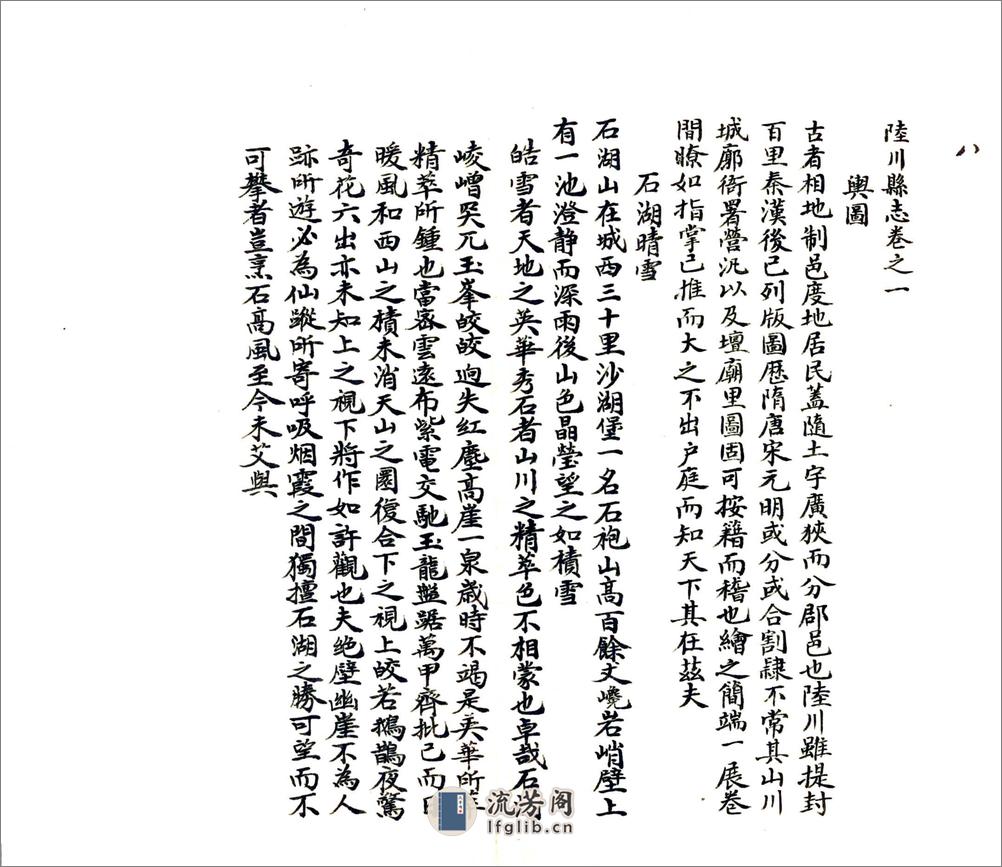 陸川縣志卷之一
輿圖
古者相地制邑度地居民蓋隨土宇廣狹而分郡邑也陸川雖提封
百里秦漢後已列版圖歷隋唐宋元明或分或合割隸不常其山川
城廓衙署營汛以及壇廟里圖固可按籍而稽也繪之簡端一展卷
間瞭如指掌已推而大之不出户庭而知天下其在茲夫
石湖晴雪
石湖山在城西三十里沙湖堡一名石袍山高百餘丈巉岩峭壁上
有一池澄静而深雨後山色晶瑩望之如積雪
皓雪者天地之英華秀石者山川之精萃色不相蒙也卓哉石
崚嶒突兀玉峯皎皎逈失紅塵高崖一泉歲時不竭是英華所
精萃所鍾也當密雲遠布紫電交馳玉龍盤踞萬甲齊批已而
暖風和西山之積未消天山之圍復合下之視上皎若鵝鸛夜驚
奇花六出亦未知上之視下將作如許觀也夫絶壁幽崖不為人
跡所遊必為仙蹤所寄呼吸烟霞之間獨擅石湖之勝可望而不
可攀者豈烹石高風至今未艾與
流芳阁
lfglib.cn